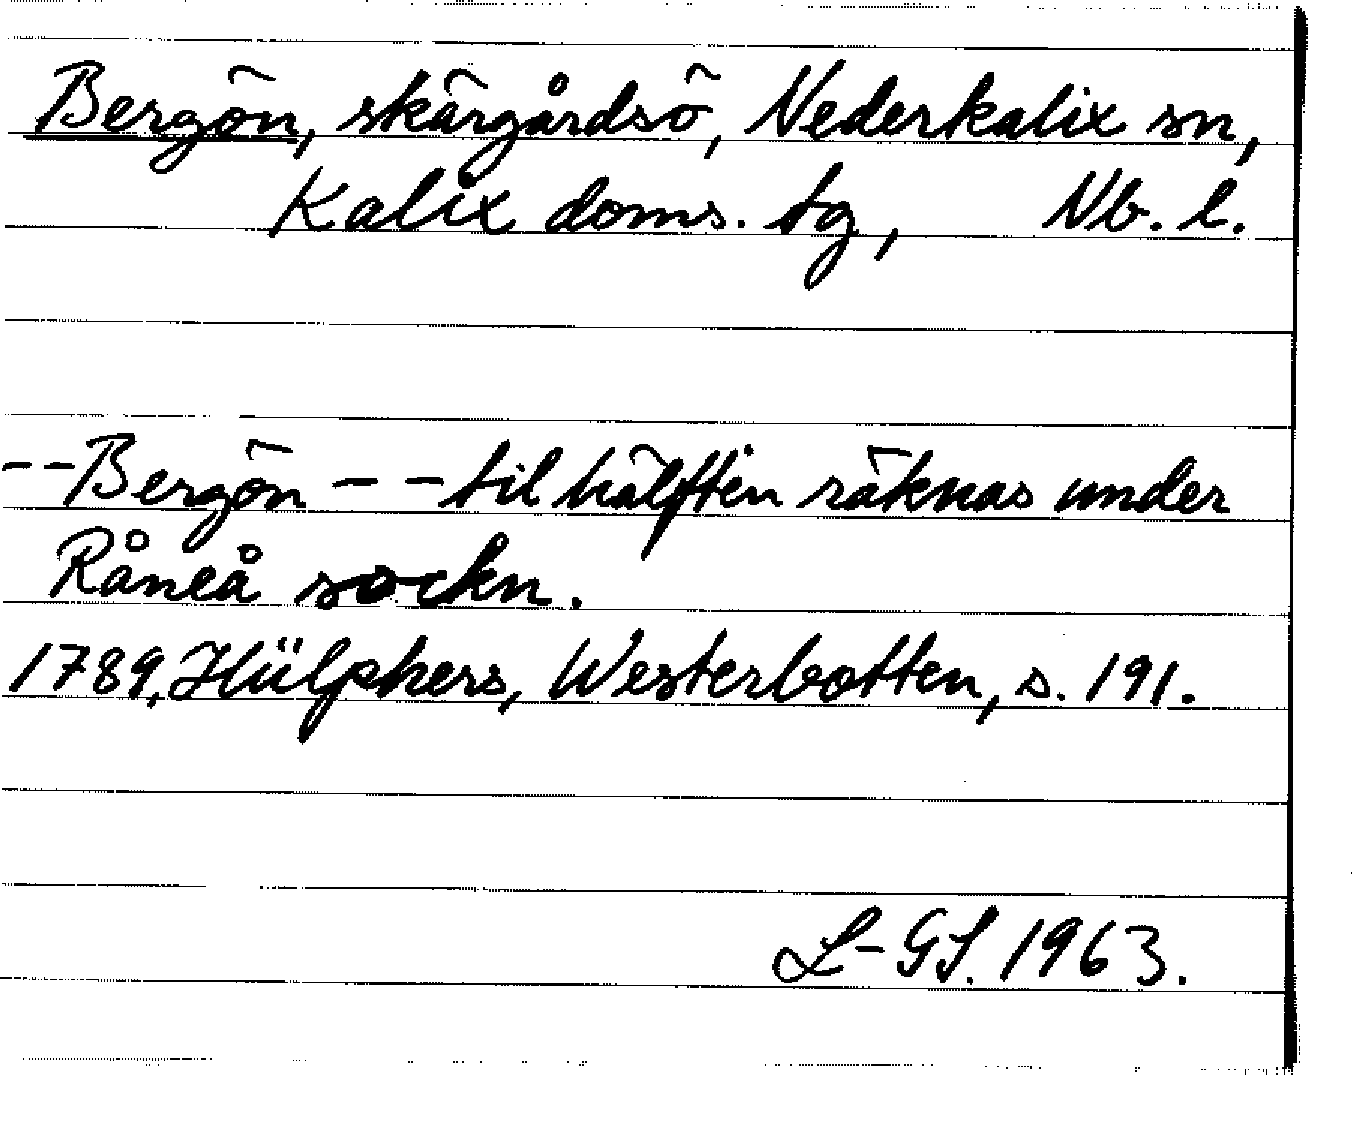 Bergön, skärgårdsö, Nederkalix sn,
Kalix doms. tg, Nb. l.
--Bergön -- til hälften räknas under
Råneå sockn.
1789, Hülphers, Westerbotten, s. 191.
L-GS. 1963.